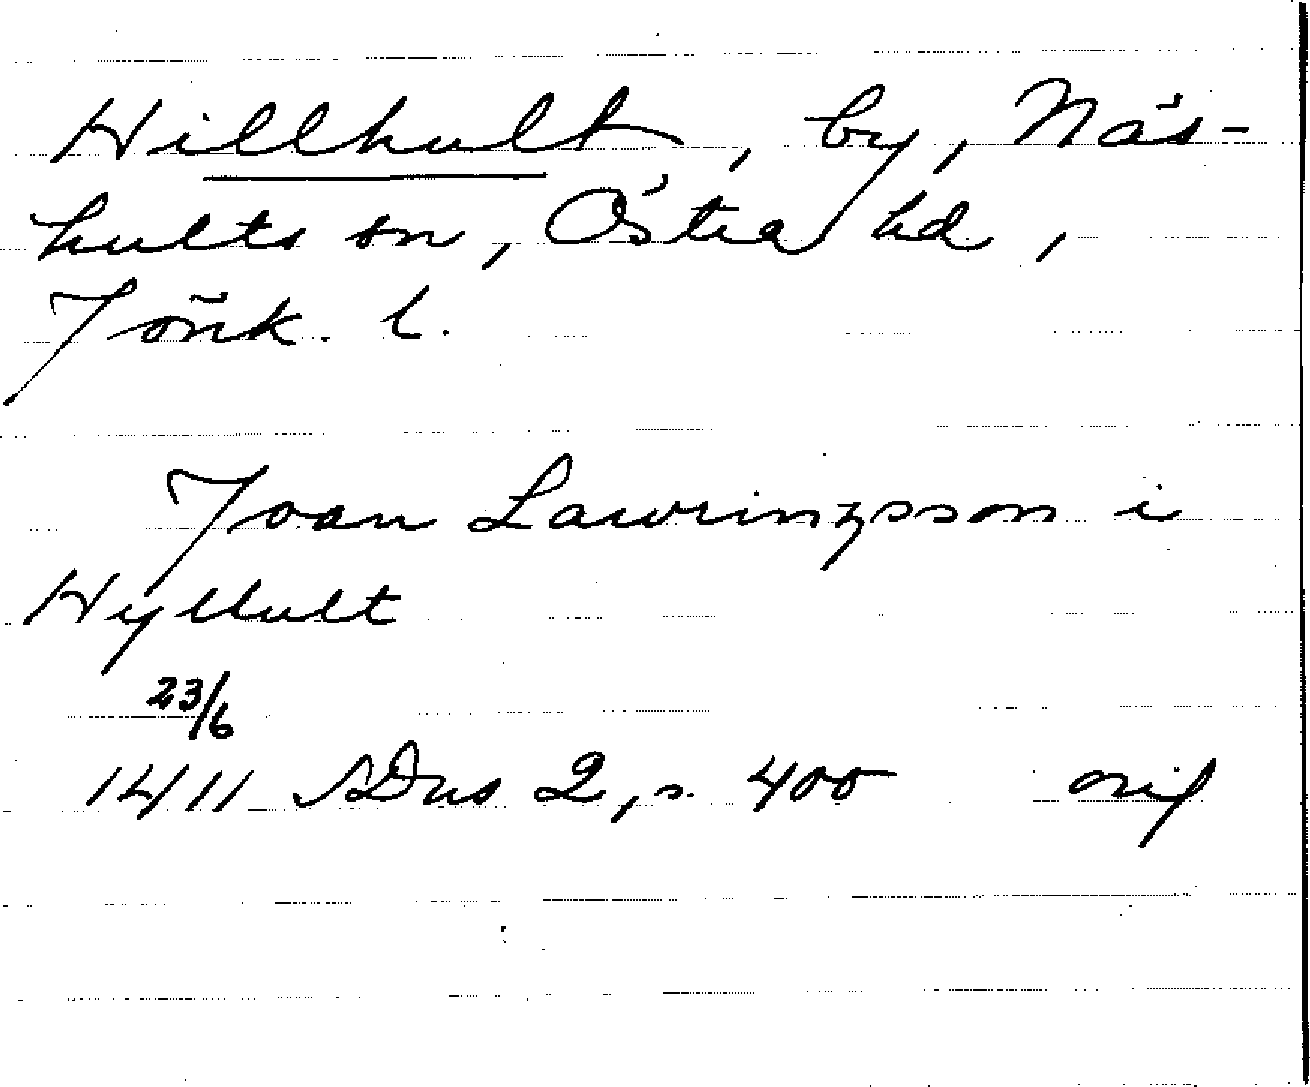 Hillhult, by, Näs-
hults sn, Östra hd,
Jönk. l.
Joan Lawrinzsson i
Hyllult
23/6
1411 SDns 2, s. 400 orig